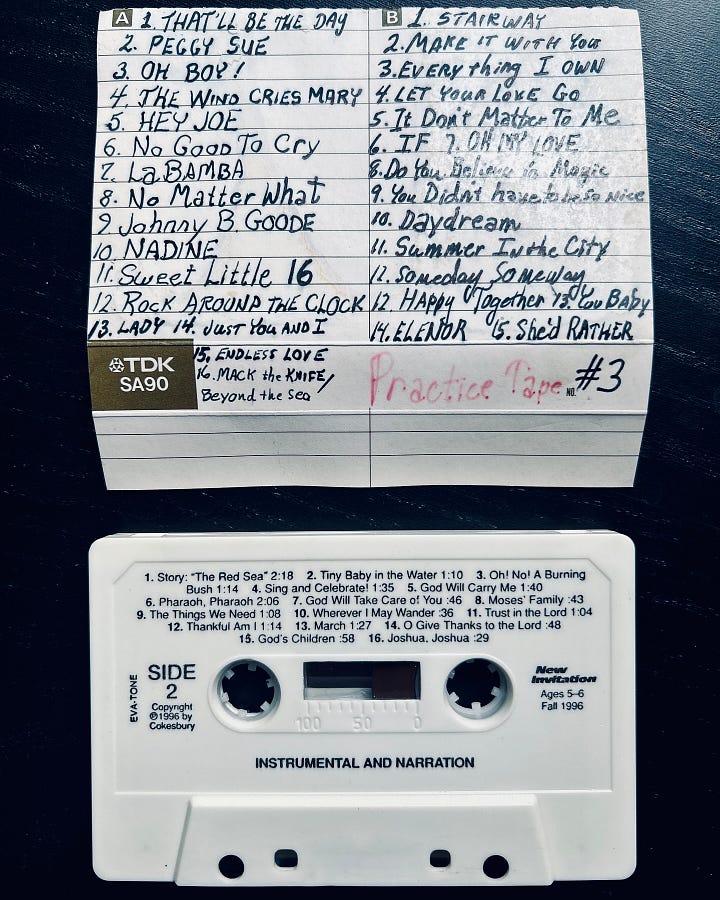 A 1. THAT'LL BE THE DAY
2. PEGGY SUE
3. OH BOY!
4. THE WIND CRIES MARY
5. HEY JOE
6. No Good To Cry
7. LaBAMBA
8. No Matter What
9 Johnny B. GOODE
10. NADINE
11. Sweet Little 16
12. ROCK AROUND THE CLOCK
13. LADY 14. JUST YOU AND I
15. ENDLESS LOVE
16. MACK the KNIFE/
Beyond the Sea
TDK
SA90
B 1. STAIRWAY
2. MAKE IT WITH YOU
3. EVERYthing I OWN
4. LET YOUR LOVE GO
5. It Don't Matter To Me
6. IF 7. OH MY LOVE
8. Do You Believe in Magic
9. You Didn't have to be So Nice
10. Daydream
11. Summer In the City
12. Someday Someway
12. Happy Together 13. You Baby
14. ELENOR 15. She'd RATHER
Practice Tape NO. #3
1. Story: "The Red Sea" 2:18 2. Tiny Baby in the Water 1:10 3. Oh! No! A Burning
Bush 1:14 4. Sing and Celebrate! 1:35 5. God Will Carry Me 1:40
6. Pharaoh, Pharaoh 2:06 7. God Will Take Care of You :46 8. Moses' Family :43
9. The Things We Need 1:08 10. Wherever I May Wander :36 11. Trust in the Lord 1:04
12. Thankful Am I 1:14 13. March 1:27 14. O Give Thanks to the Lord :48
15. God's Children :58 16. Joshua, Joshua :29
EVA-TONE
SIDE
2
Copyright
℗1996 by
Cokesbury
100 50 0
New
Invitation
Ages 5–6
Fall 1996
INSTRUMENTAL AND NARRATION